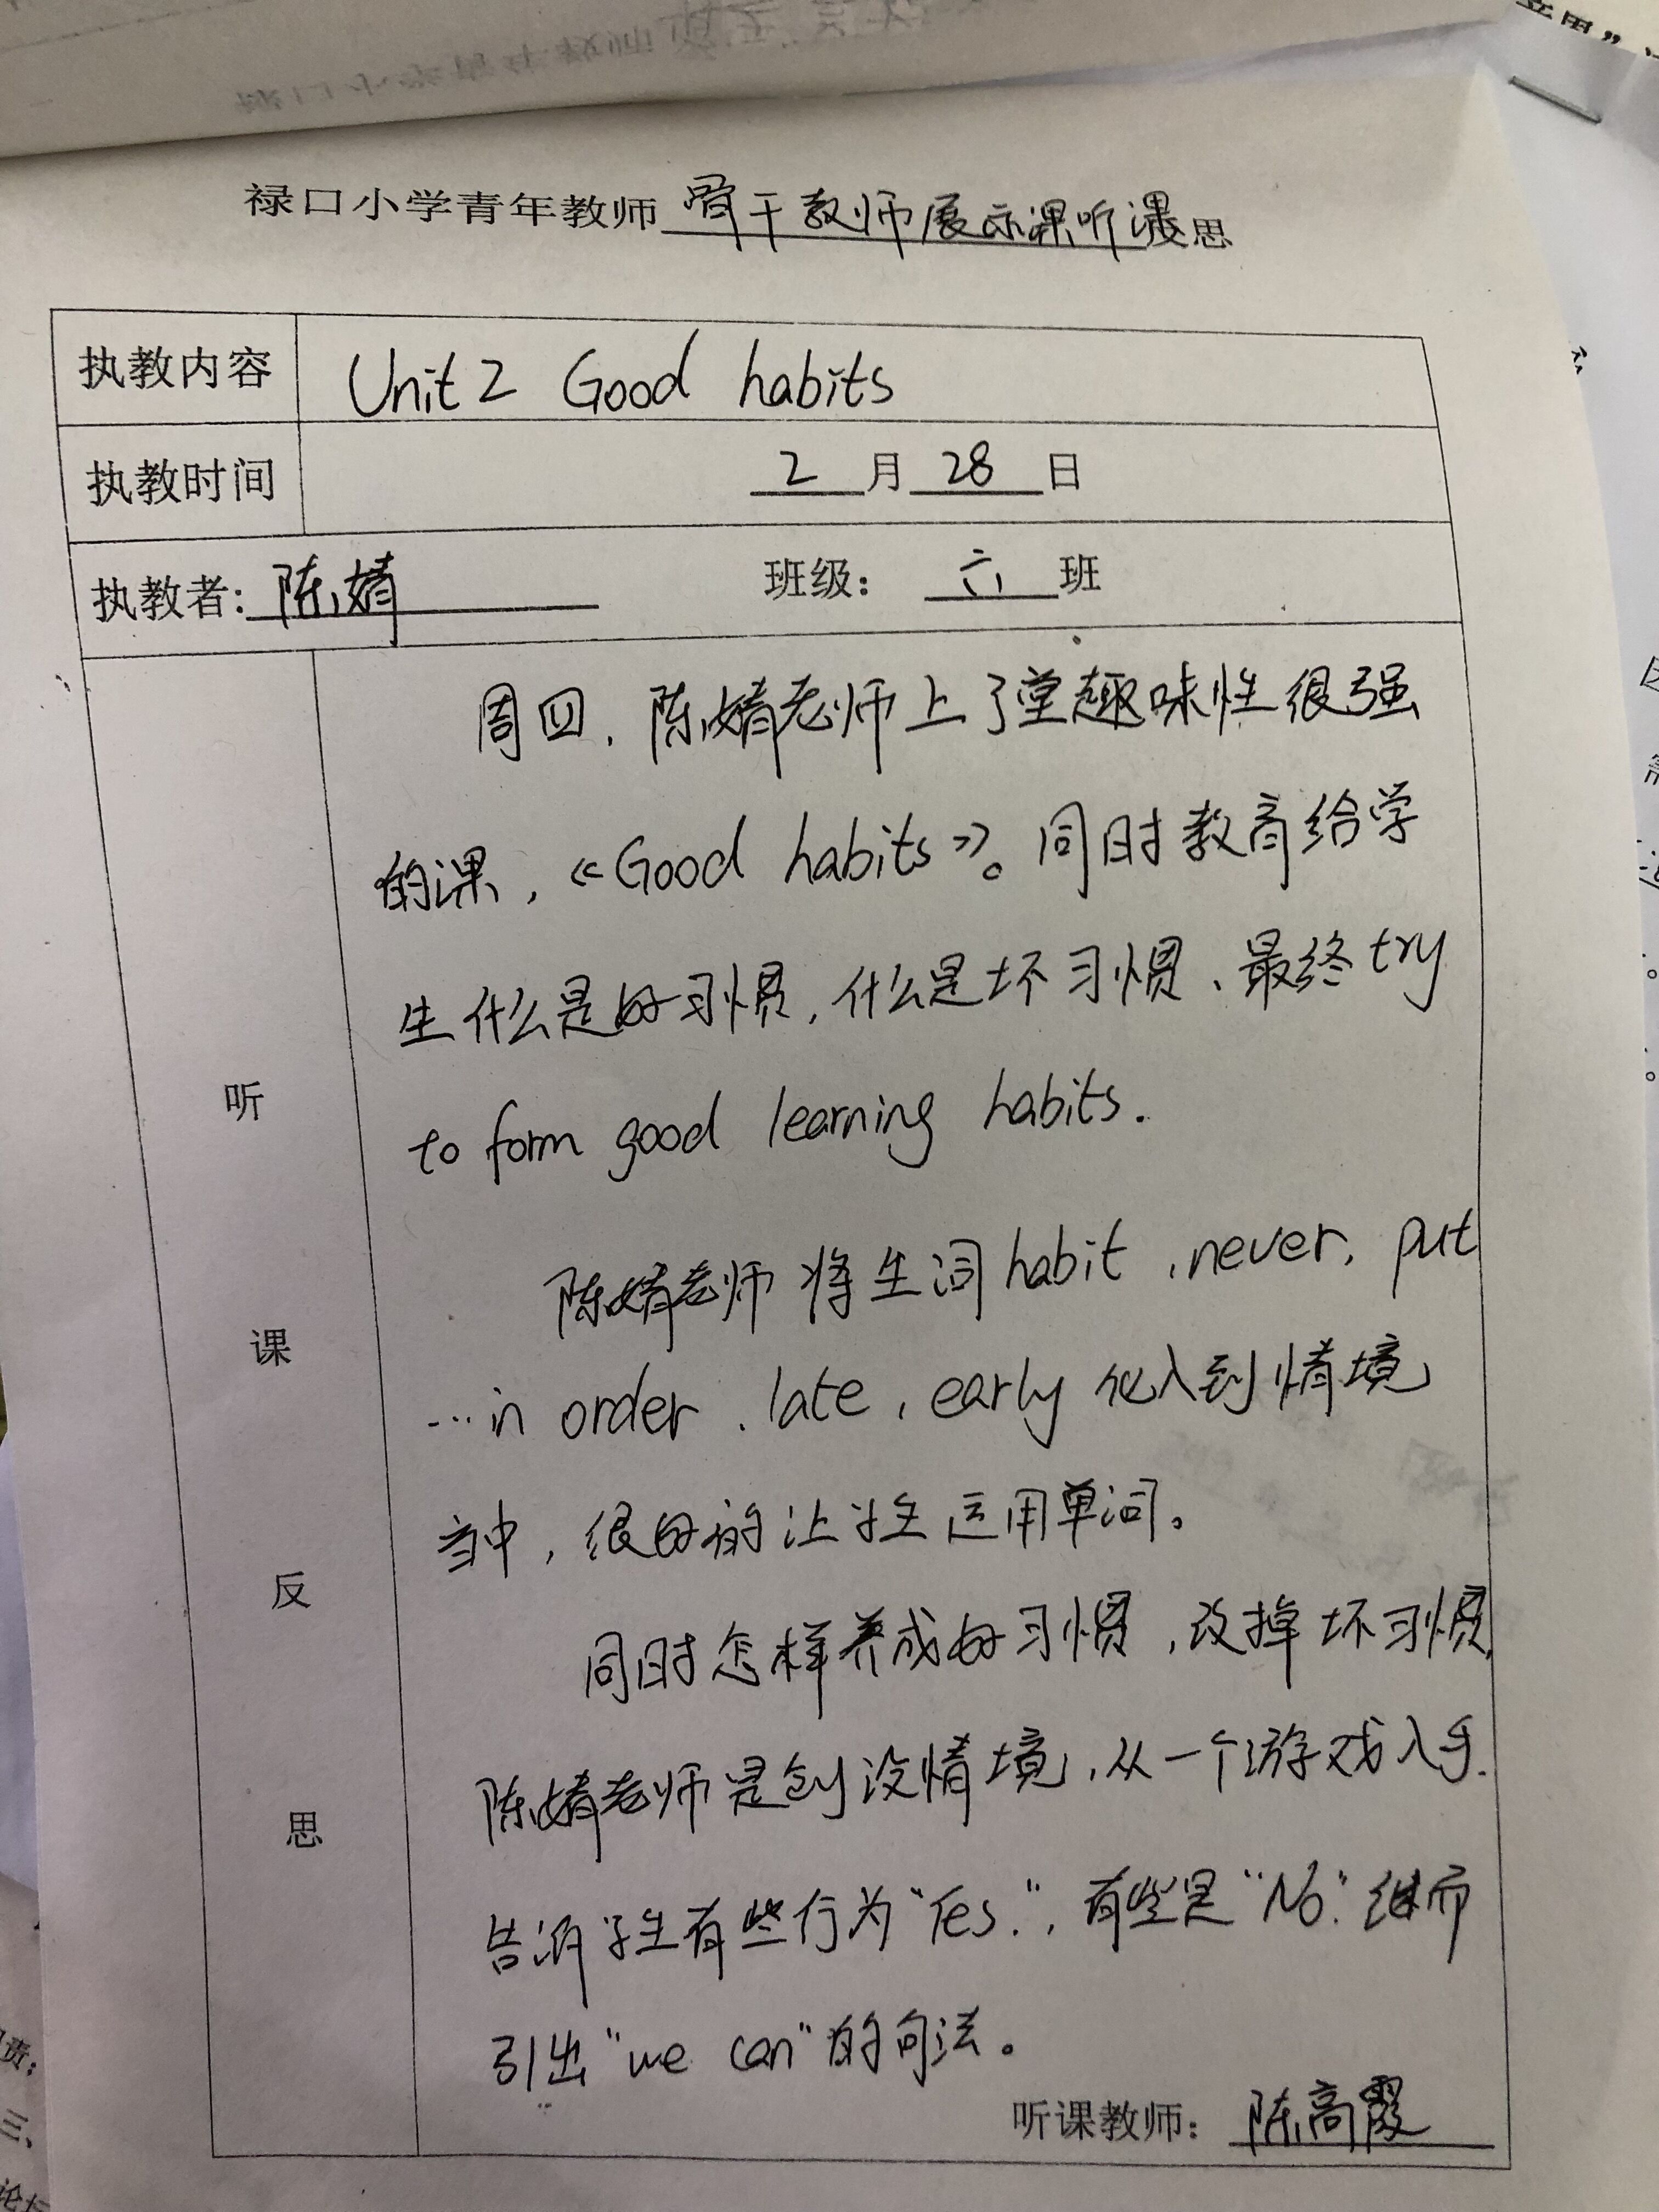 禄口小学青年教师骨干教师展示课听课反思
执教内容 Unit 2 Good habits
执教时间 2月28日
执教者: 陈婧 班级: 六 班
听课反思
周四，陈婧老师上了堂趣味性很强
的课，《Good habits》。同时教育给学
生什么是好习惯，什么是坏习惯、最终try
to form good learning habits.
陈婧老师将生词habit,never,put
…in order、late,early化入到情境
当中，很好的让学生运用单词。
同时怎样养成好习惯，改掉坏习惯,
陈婧老师是创设情境，从一个游戏入手.
告诉学生有些行为“Yes.”,有些是“No.”继而
引出“we can”的句法。
听课教师: 陈高霞